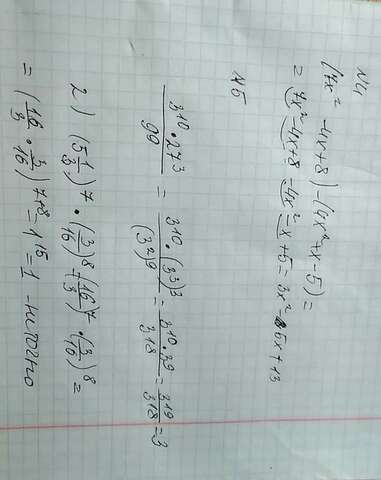 N4
(7x² - 4x+8) - (4x²+x-5) =
= 7x²-4x+8 -4x²-x+5 = 3x²-5x+13
N5
3¹⁰·27³ / 9⁹ = 3¹⁰·(3³)³ / (3²)⁹ = 3¹⁰·3⁹ / 3¹⁸ = 3¹⁹ / 3¹⁸ = 3
2) (5 1/3)⁷ · (3/16)⁸ = (16/3)⁷ · (3/16)⁸ =
= (16/3 · 3/16)⁷⁺⁸ = 1¹⁵ = 1